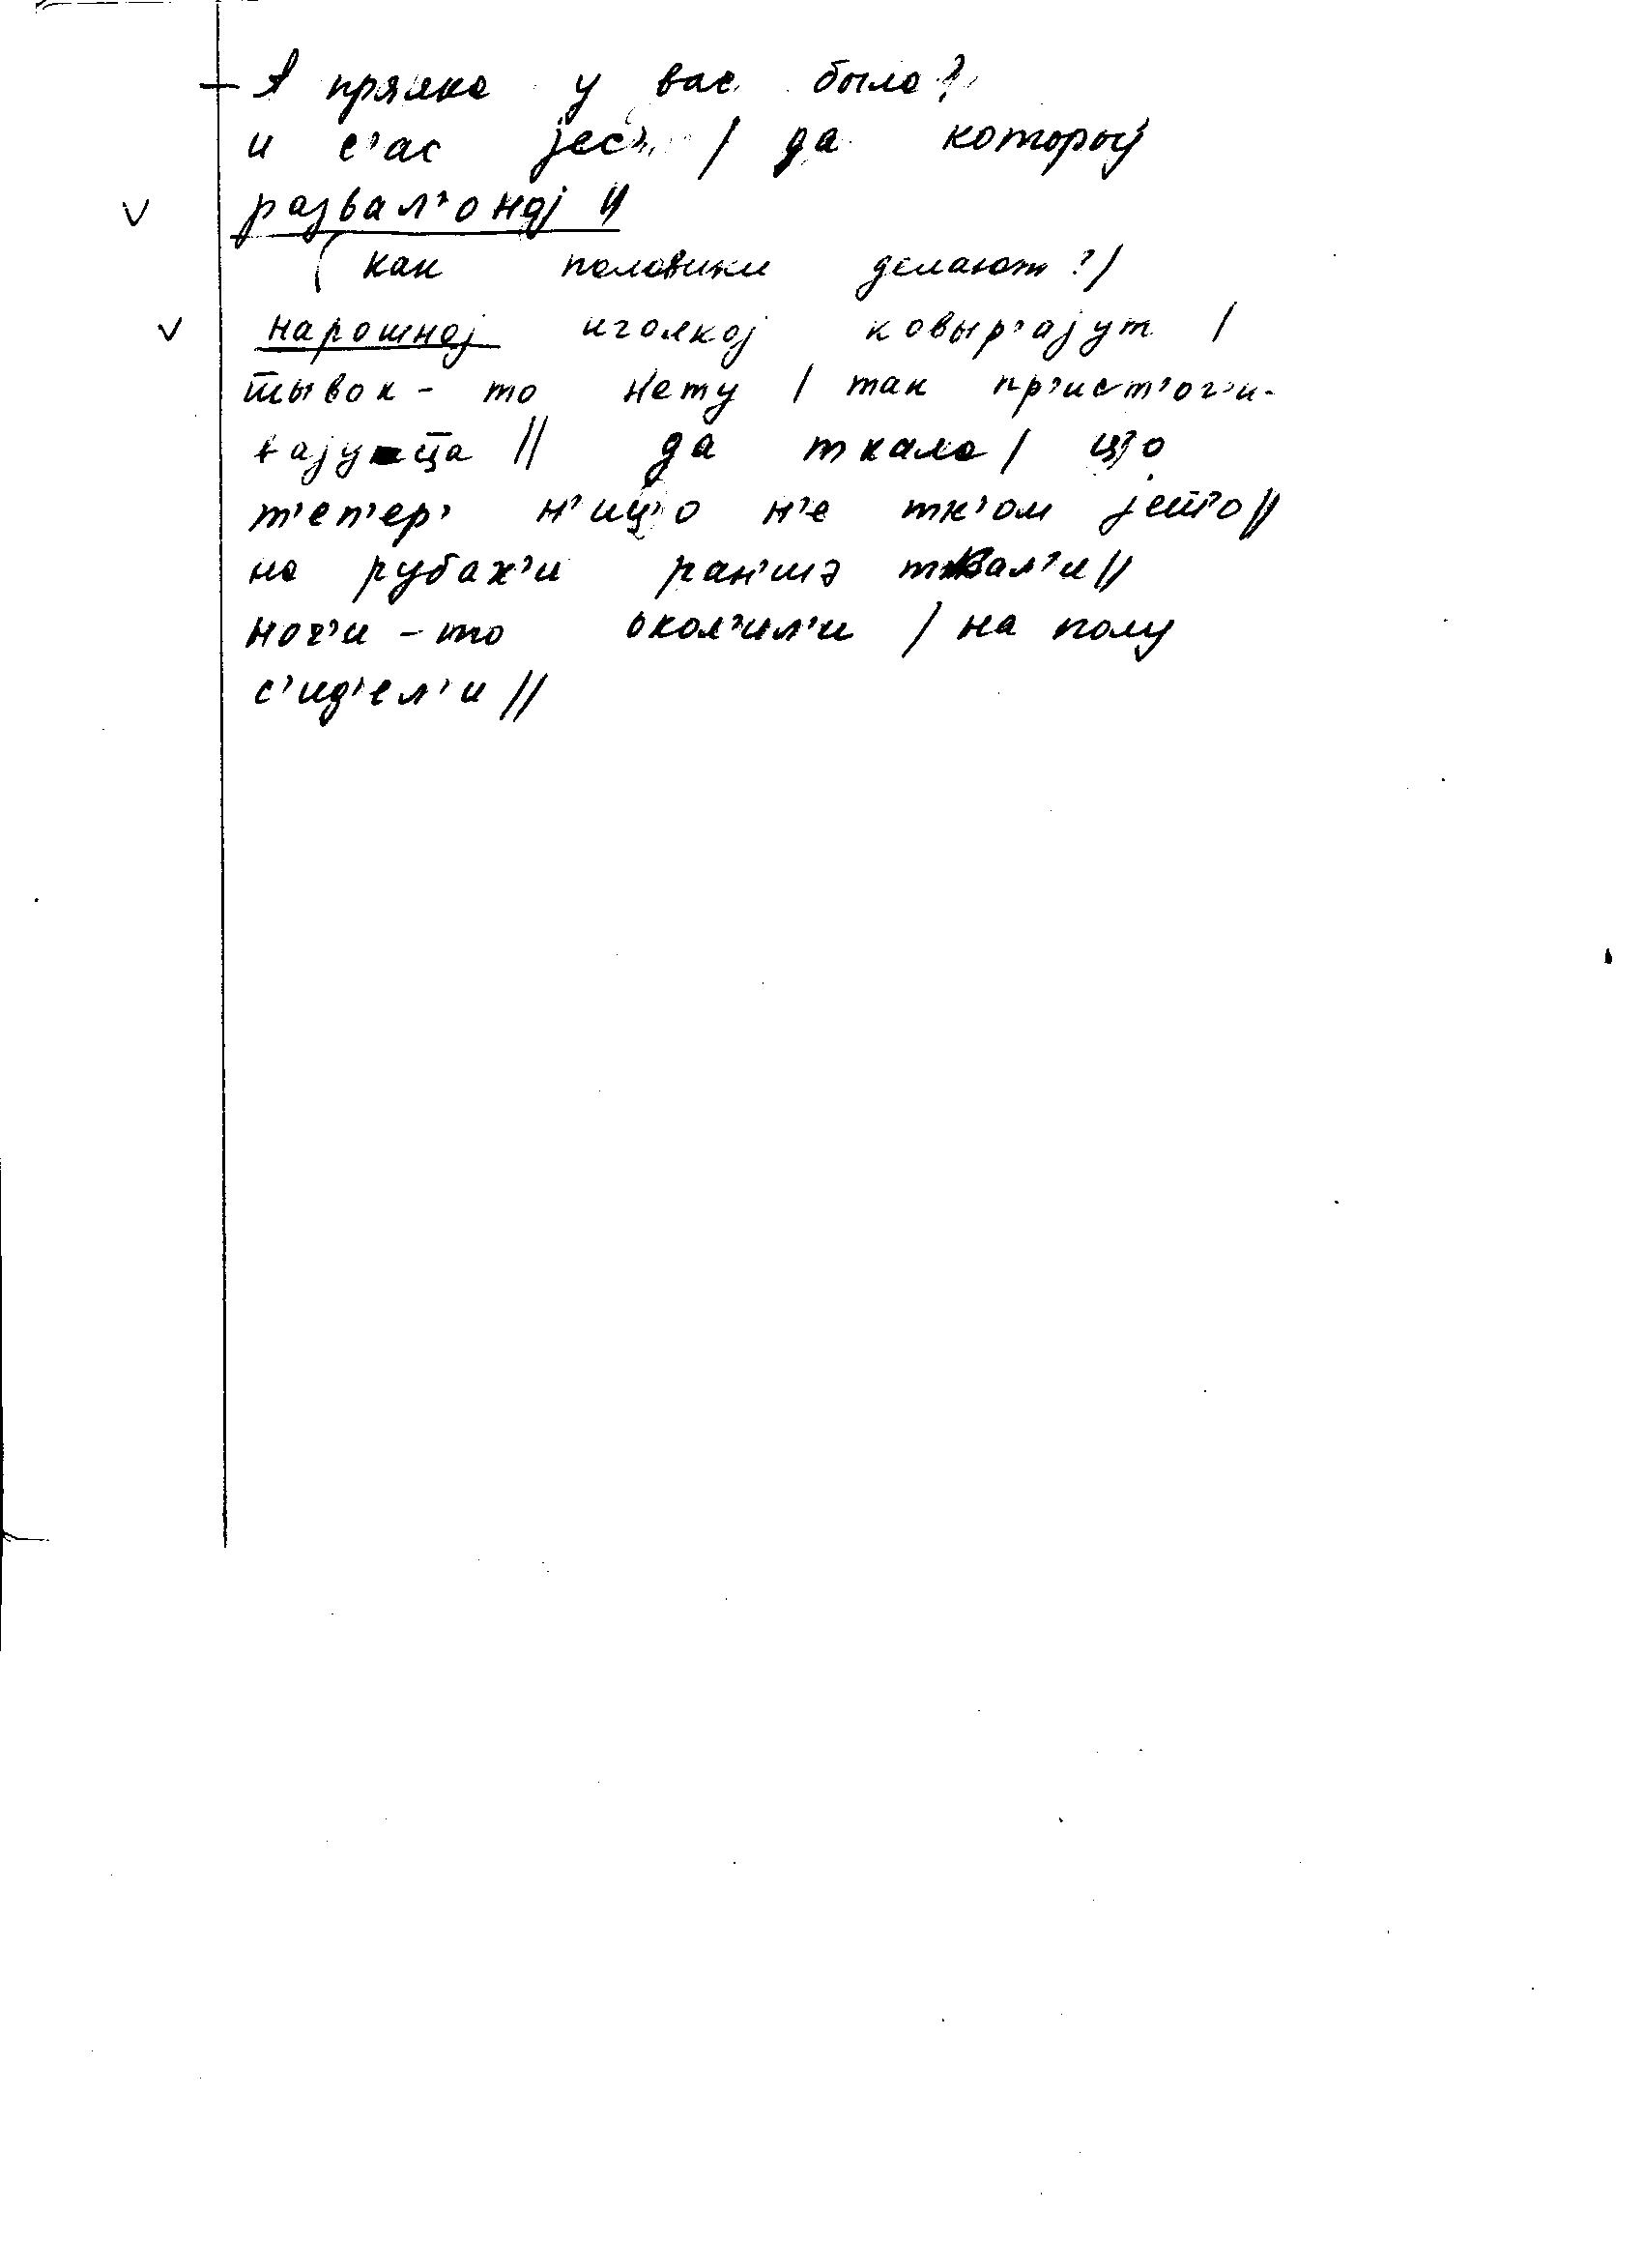 А прялка у вас была?
и с'ас јес' / да которыј
развал'онəј //
(как половики делают?)
нарошној иголкој ковыр'ајут /
шывок - то нету / так пр'ист'ог'и-
вајуца // да ткала / ц'о
т'еп'ер' н'иц'о н'е тк'ом јешо //
на рубах'и ран'шə ткал'и //
ног'и - то окол'ил'и / на полу
с'ид'ел'и //